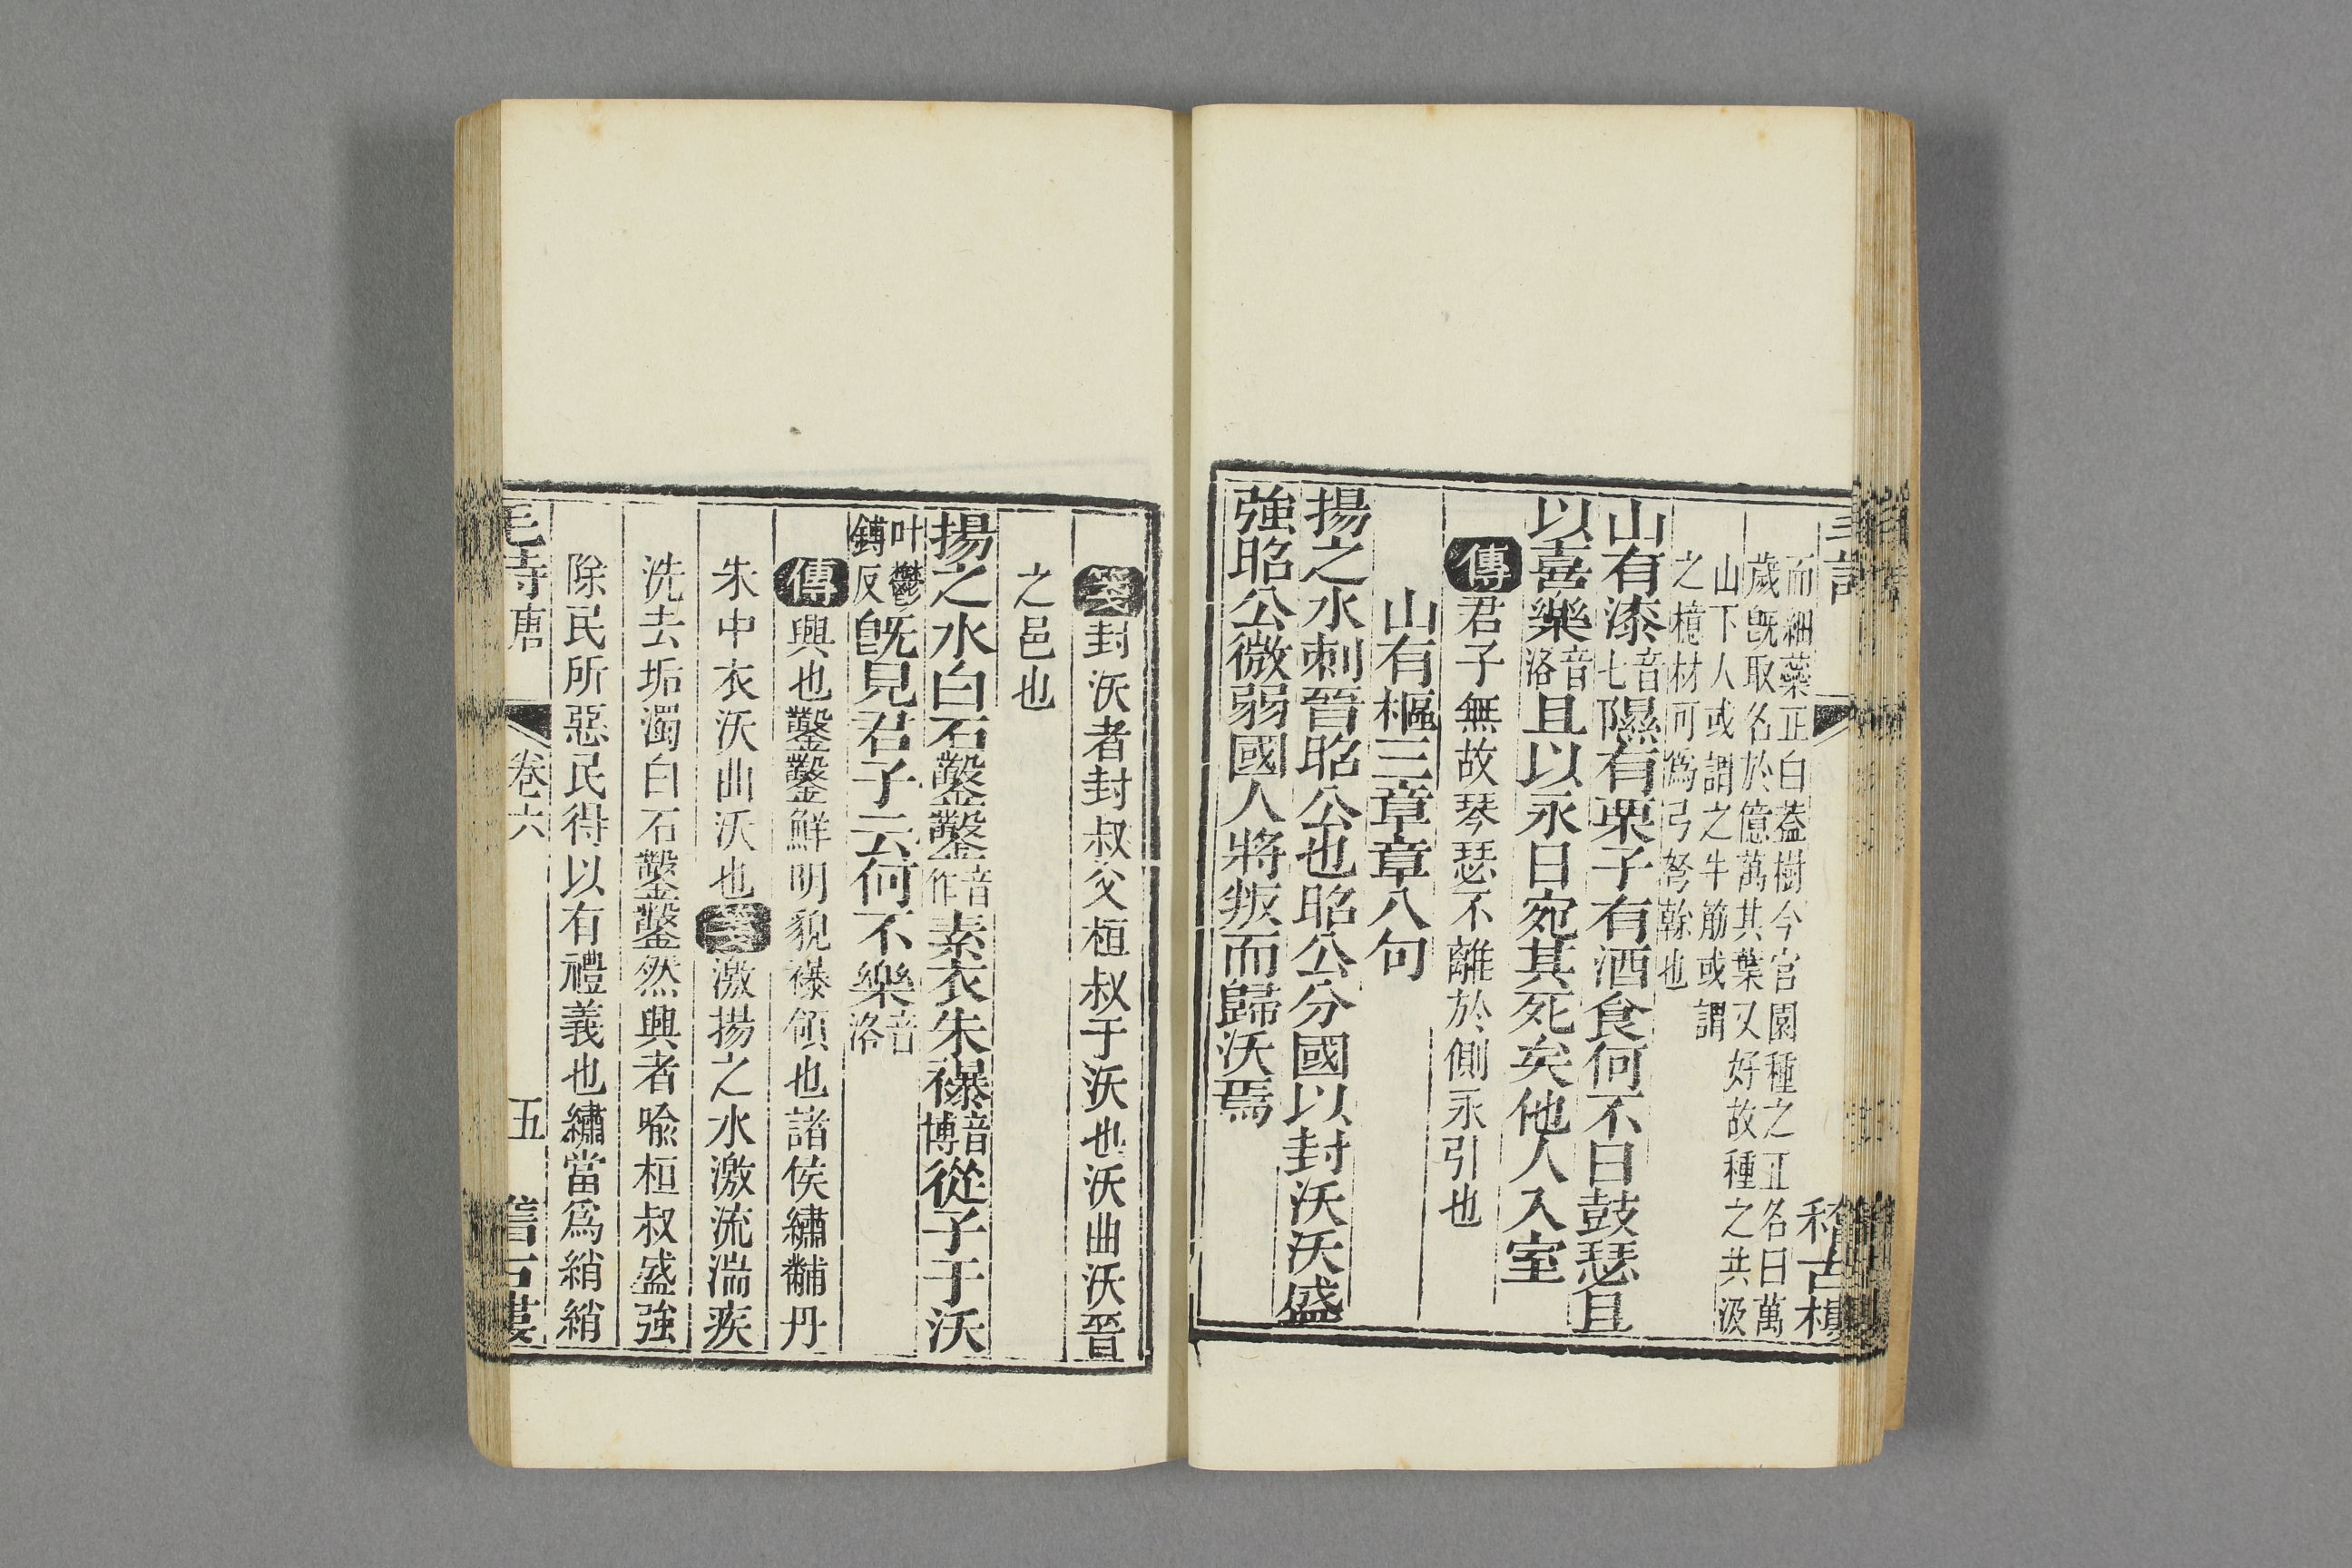 而細蘂正白葢樹今官園種之正名曰萬
歲旣取名於億萬其葉又好故種之共汲
山下人或謂之牛筋或謂
之檍材可爲弓弩榦也
山有漆音七隰有栗子有酒食何不日鼓瑟且
以喜樂音洛且以永日宛其死矣他人入室
傳君子無故琴瑟不離於側永引也
山有樞三章章八句
揚之水刺晉昭公也昭公分國以封沃沃盛
強昭公微弱國人將叛而歸沃焉
箋封沃者封叔父桓叔于沃也沃曲沃晉
之邑也
揚之水白石鑿鑿音作素衣朱襮音博從子于沃
叶鬱鎛反旣見君子云何不樂音洛
傳興也鑿鑿鮮明貌襮領也諸侯繡黼丹
朱中衣沃曲沃也箋激揚之水激流湍疾
洗去垢濁白石鑿鑿然興者喩桓叔盛強
除民所惡民得以有禮義也繡當爲綃綃
毛詩唐 卷六 五